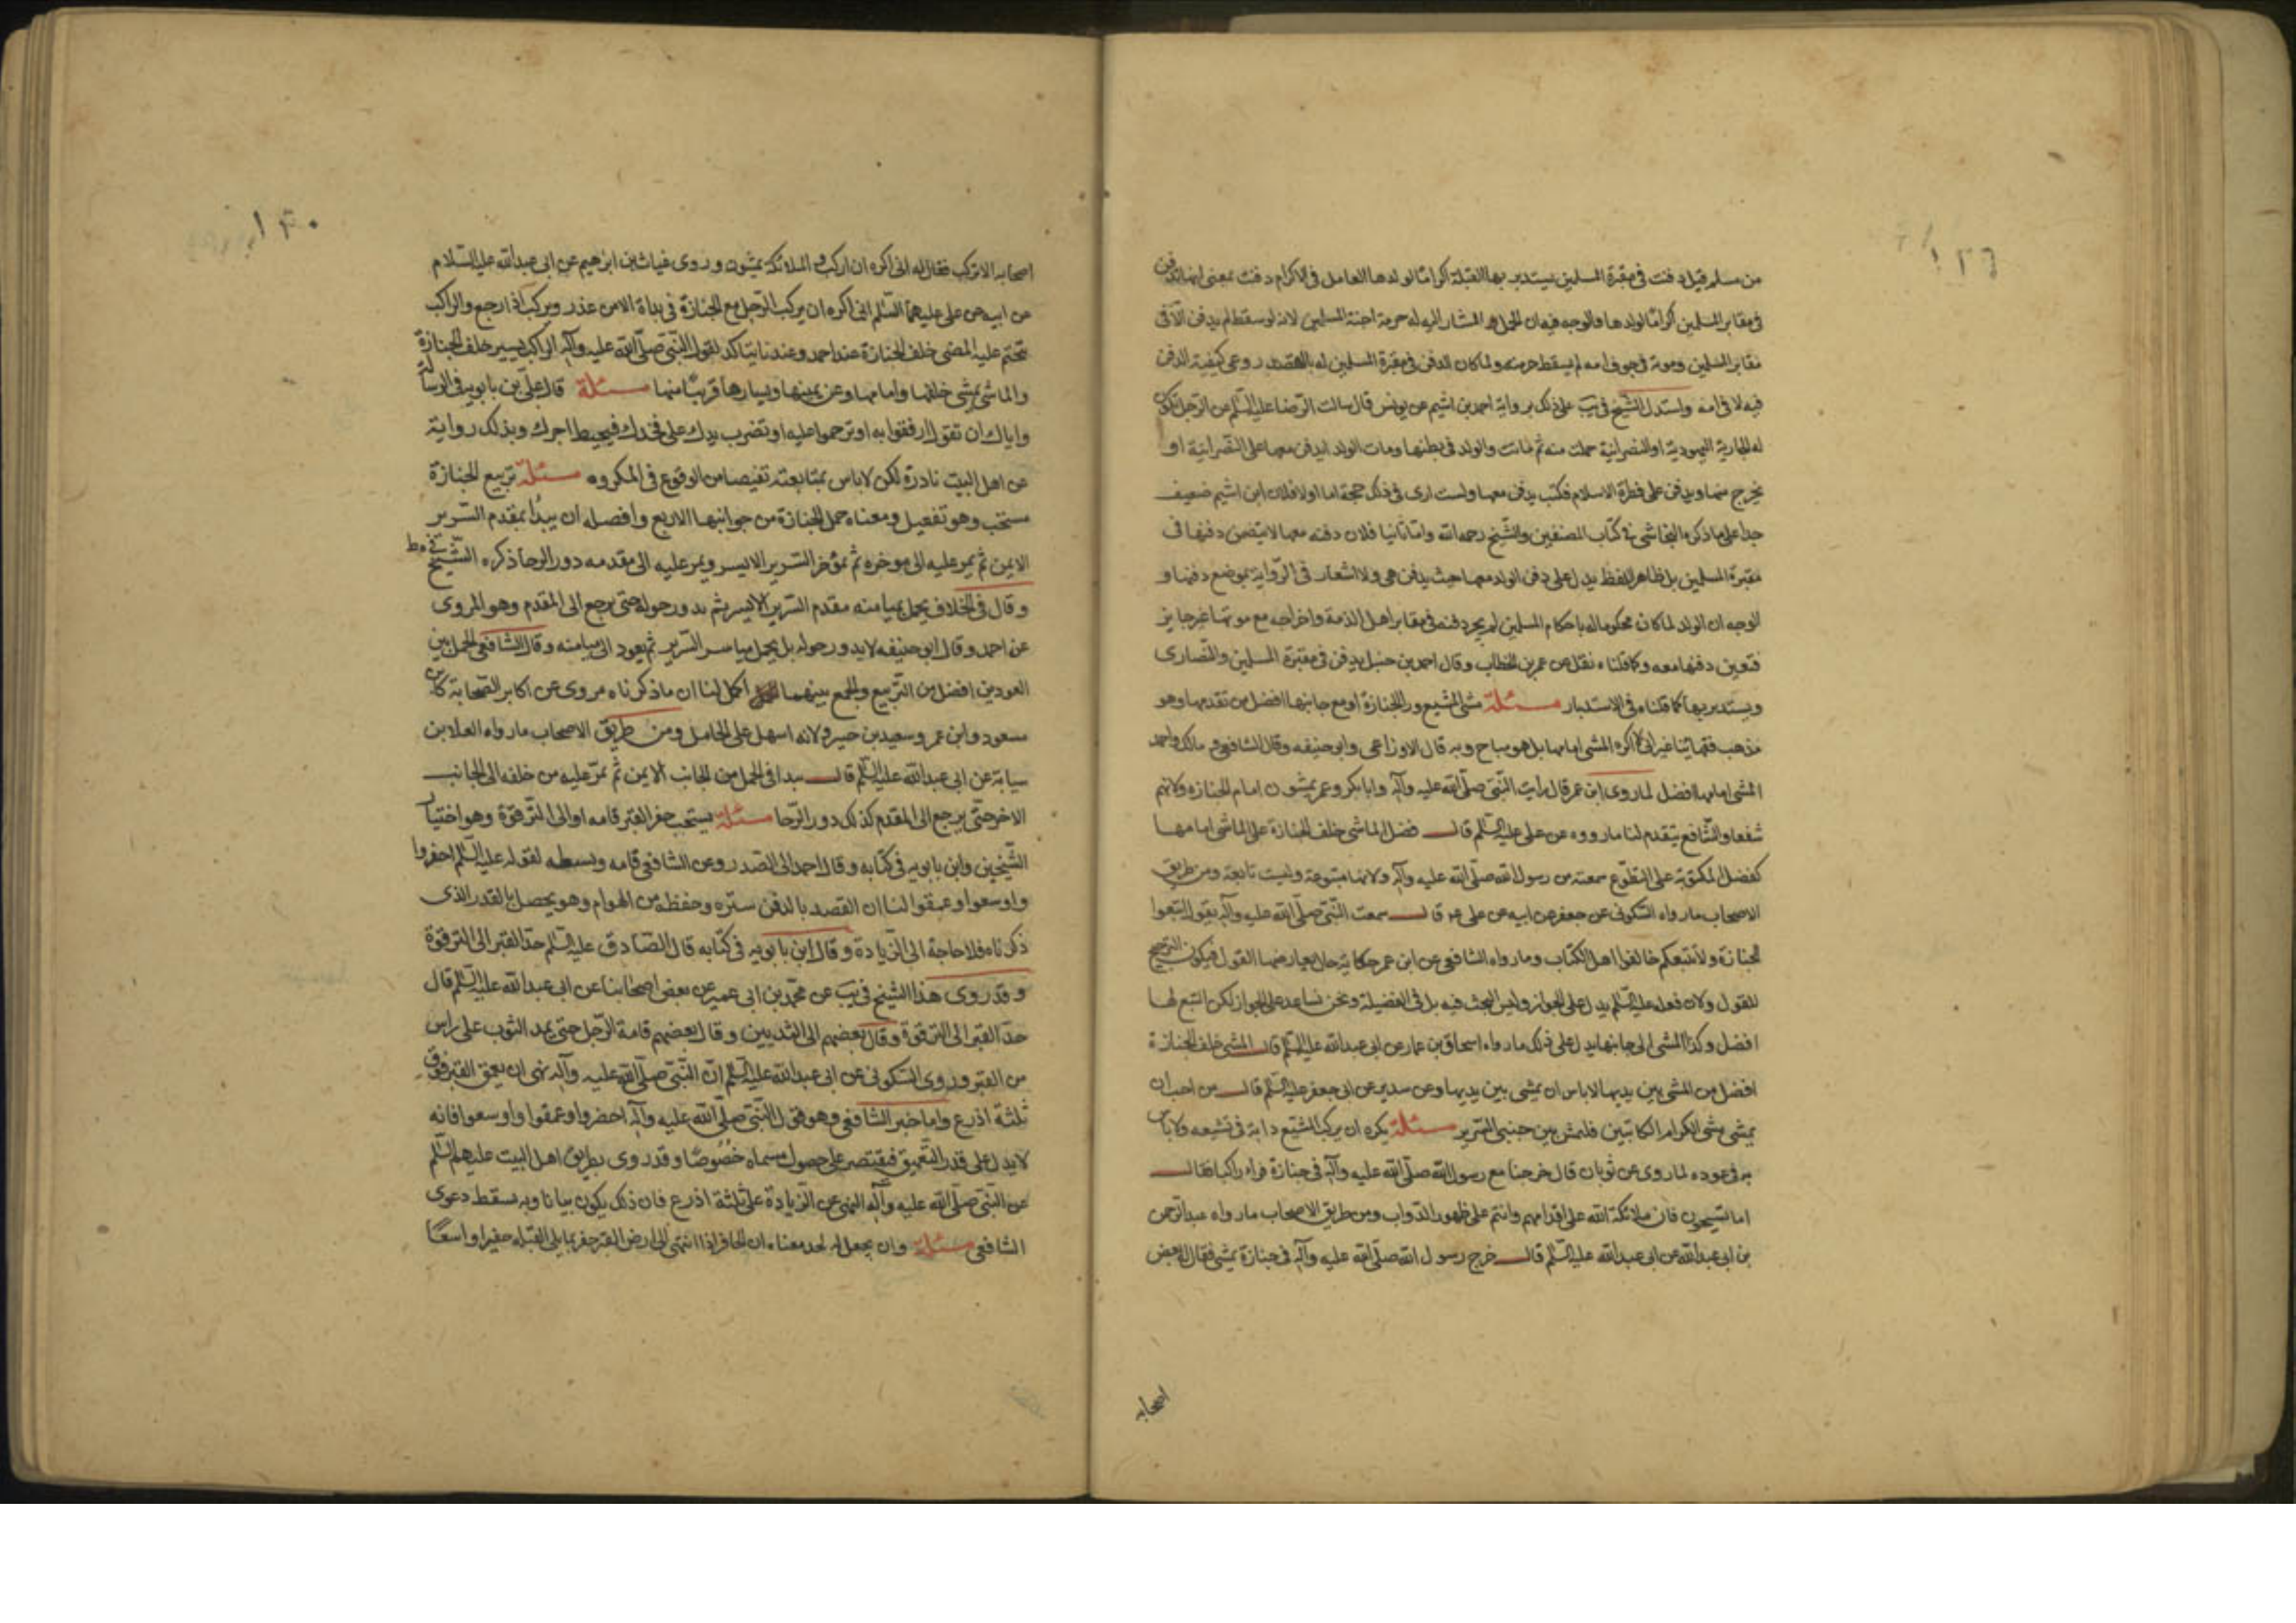 من مسلم قيل دفنت في مقبرة المسلمين يستدبر بها القبلة اكراما لولدها العامل في الاكرام دفنت بمعنى انها تدفن
في مقابر المسلمين اكراما لولدها والوجه فيه ان الحمل المشار اليه له حرمة اجنة المسلمين لانه لو سقط لم يدفن الا في
مقابر المسلمين وموته في جوف امه لم يسقط حرمته ولما كان الدفن في مقبرة المسلمين له بالقصد روعي كيفية الدفن
فيه لا في امه واستدل الشيخ في يب على ذلك برواية احمد بن اشيم عن يونس قال سالت الرضا عليه السلم عن الرجل تكون
له الجارية اليهودية او النصرانية حملت منه ثم ماتت والولد في بطنها ومات الولد ايدفن معها على النصرانية او
يخرج منها ويدفن على فطرة الاسلام فكتب يدفن معها ولست ارى في ذلك حجة اما اولا فلان ابن اشيم ضعيف
جدا على ما ذكره النجاشي في كتاب المصنفين والشيخ رحمه الله واما ثانيا فلان دفنه معها لا يتضمن دفنها في
مقبرة المسلمين بل ظاهر اللفظ يدل على دفن الولد معها حيث يدفن هي ولا اشعار في الرواية بموضع دفنها و
الوجه ان الولد لما كان محكوما له باحكام المسلمين لم يجز دفنه في مقابر اهل الذمة واخراجه مع موتها غير جايز
فتعين دفنها معه وكا قلناه نقل عن عمر بن الخطاب وقال احمد بن حنبل يدفن في مقبرة المسلمين والنصارى
ويستدبر بها كما قلناه في الاستدبار مسئلة مشي المشيع ورا الجنازة او مع جانبها افضل من تقدمها وهو
مذهب فقهائنا غير اني لا اكره المشي امامها بل هو مباح وبه قال الاوزاعي وابو حنيفه وقال الشافعي و مالك واحمد
المشي امامها افضل لما روى ابن عمر قال رايت النبي صلى الله عليه وآله وابا بكر وعمر يمشون امام الجنازه ولانهم
شفعا والشافع يتقدم لنا ما رووه عن علي عليه السلم قال فضل الماشي خلف الجنازة على الماشي امامها
كفضل المكتوبة على التطوع سمعته من رسول الله صلى الله عليه وآله ولانها متبوعة وليست تابعة ومن طريق
الاصحاب ما رواه السكوني عن جعفر عن ابيه عن علي عم قال سمعت النبي صلى الله عليه وآله يقول اتبعوا
الجنازة ولا تتبعكم خالفوا اهل الكتاب وما رواه الشافعي عن ابن عمر حكاية حال يعارضها القول فيكون الترجيح
للقول ولان فعله عليه السلم يدل على الجواز وليس البحث فيه بل في الفضيلة ونحن نساعد على الجواز لكن التبع لها
افضل وكذا المشي الى جانبها يدل على ذلك ما رواه اسحاق بن عمار عن ابي عبد الله عليه السلم قال المشي خلف الجنازة
افضل من المشي بين يديها لا باس ان يمشي بين يديها وعن سدير عن ابي جعفر عليه السلم قال من احب ان
يمشي مشي الكرام الكاتبين فليمش بين جنبي السرير مسئلة يكره ان يركب المشيع دابة في تشيعه ولا باس
به في عوده لما روي عن ثوبان قال خرجنا مع رسول الله صلى الله عليه وآله في جنازة فراى راكبا فقال
اما تستحيون فان ملائكة الله على اقدامهم وانتم على ظهور الدواب ومن طريق الاصحاب ما رواه عبد الرحمن
بن ابي عبد الله عن ابي عبد الله عليه السلم قال خرج رسول الله صلى الله عليه وآله في جنازة يمشي فقال له بعض
اصحابه
١٣٠
اصحابه الا تركب فقال له اني اكره ان اركب و الملائكة يمشون وروى غياث بن ابرهيم عن ابي عبد الله عليه السلام
عن ابيه عن علي عليهما السلم اني اكره ان يركب الرجل مع الجنازة في بداة الا من عذر ويركب اذا رجع والراكب
تحتم عليه المضي خلف الجنازة عند احمد وعندنا يتاكد لقول النبي صلى الله عليه وآله الراكب يسير خلف الجنازة
والماشي يمشي خلفها وامامها وعن يمينها ويسارها قريبا منها مسئلة قال علي بن بابويه في الرسالة
واياك ان تقول ارفقوا به او ترحموا عليه او تضرب يدك على فخذك فيحبط اجرك وبذلك رواية
عن اهل البيت نادرة لكن لا باس بمتابعته تفيصا من الوقوع في المكروه مسئلة تربيع الجنازة
مستحب وهو تفعيل ومعناه حمل الجنازة من جوانبها الاربع وافضله ان يبدأ بمقدم السرير
الايمن ثم يمر عليه الى موخره ثم بمؤخر السرير الايسر ويمر عليه الى مقدمه دور الرحا ذكره الشيخ في ط
وقال في الخلاف يحمل بميامنه مقدم السرير الايسر ثم يدور حوله حتى يرجع الى المقدم وهو المروي
عن احمد وقال ابو حنيفه لا يدور حوله بل يحمل مياسر السرير ثم يعود الى ميامنه وقال الشافعي الحمل بين
العودين افضل من التربيع والجمع بينهما اكمل لنا ان ما ذكرناه مروي عن اكابر الصحابة كابن
مسعود وابن عمر وسعيد بن جبير ولانه اسهل على الحامل ومن طريق الاصحاب ما رواه العلا بن
سيابة عن ابي عبد الله عليه السلم قال يبدا في الحمل من الجانب الايمن ثم يمر عليه من خلفه الى الجانب
الاخر حتى يرجع الى المقدم كذلك دور الرحا مسئلة يستحب حفر القبر قامه او الى الترقوة وهو اختيار
الشيخين وابن بابويه في كتابه وقال احمد الى الصدر وعن الشافعي قامه وبسطه لقوله عليه السلم احفروا
واوسعوا وعمقوا لنا ان القصد بالدفن ستره وحفظه من الهوام وهو يحصل بالقدر الذي
ذكرناه فلا حاجة الى الزيادة وقال ابن بابويه في كتابه قال الصادق عليه السلم حد القبر الى الترقوة
وقد روى هذا الشيخ في يب عن محمد بن ابي عمير عن بعض اصحابنا عن ابي عبد الله عليه السلم قال
حد القبر الى الترقوة وقال بعضهم الى الثديين وقال بعضهم قامة الرجل حتى يمد الثوب على راس
من القبر وروى السكوني عن ابي عبد الله عليه السلم ان النبي صلى الله عليه وآله نهى ان يعمق القبر فوق
ثلثة اذرع واما خبر الشافعي وهو قول النبي صلى الله عليه وآله احضروا وعمقوا واوسعوا فانه
لا يدل على قدر التعميق فيقتصر على حصول مسماه خصوصا وقد روي بطريق اهل البيت عليهم السلم
عن النبي صلى الله عليه وآله النهي عن الزيادة على ثلثة اذرع فان ذلك يكون بيانا وبه يسقط دعوى
الشافعي مسئلة وان يجعل له لحد معناه ان الحافر اذا انتهى الى ارض القبر حفر مما يلي القبلة حفيرا واسعا